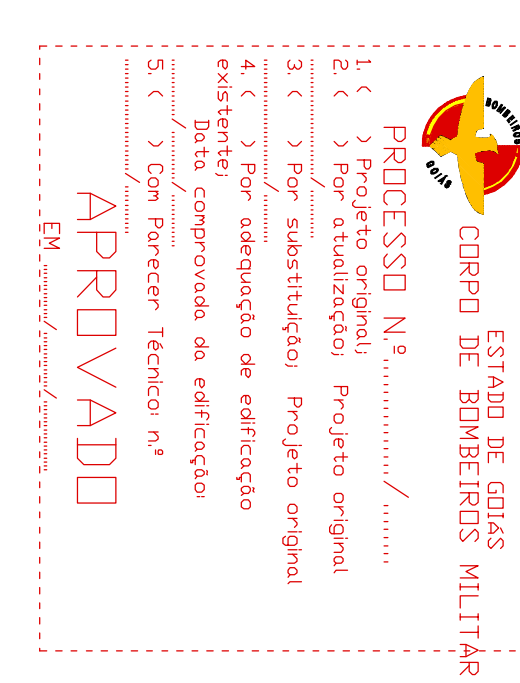 ESTADO DE GOIÁS
CORPO DE BOMBEIROS MILITAR
BOMBEIROS
GOIÁS
PROCESSO N.º ................/ ........
1. (   ) Projeto original;
2. (   ) Por atualização; Projeto original
............/............
3. (   ) Por substituição; Projeto original
............/............
4. (   ) Por adequação de edificação
existente;
Data comprovada da edificação:
............/............/............
5. (   ) Com Parecer Técnico: n.º
............................/............
APROVADO
EM ............/............/................